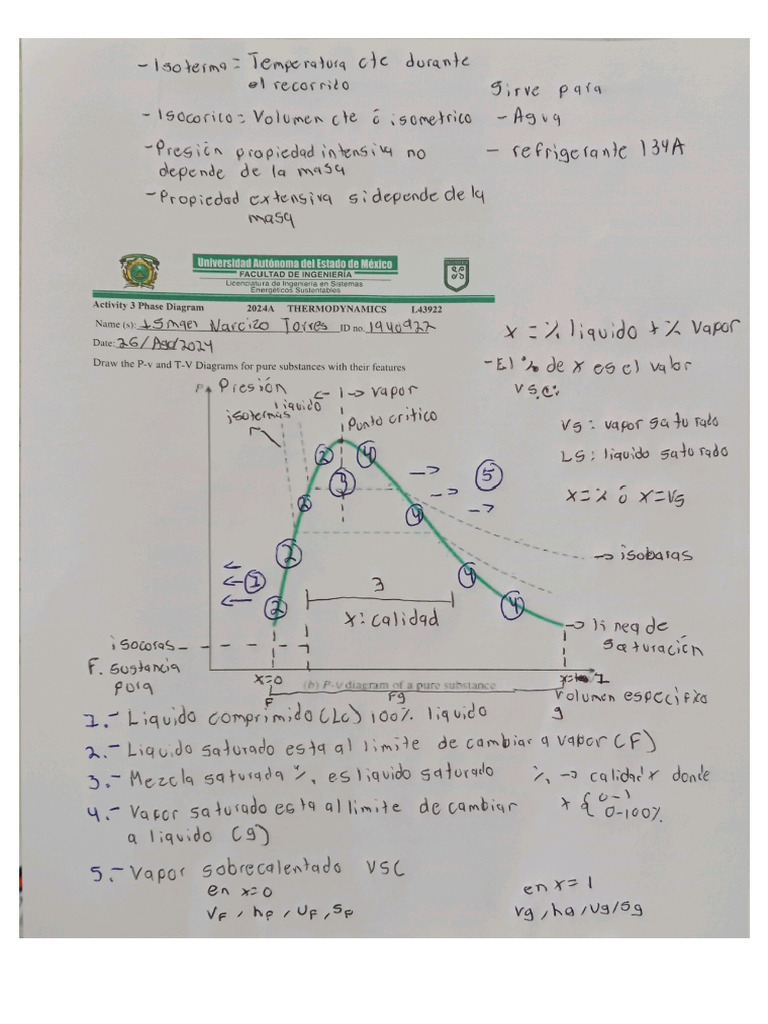 - Isoterma = Temperatura cte durante
el recorrido
- Isocorico = Volumen cte ó isometrico
- Presión propiedad intensiva no
depende de la masa
- Propiedad extensiva si depende de la
masa
Sirve para
- Agua
- refrigerante 134A
Universidad Autónoma del Estado de México
FACULTAD DE INGENIERÍA
Licenciatura de Ingeniería en Sistemas
Energéticos Sustentables
Activity 3 Phase Diagram 2024A THERMODYNAMICS L43922
Name (s): Narcizo Torres ID no. 1940922
Date: 26/Ago/2024
Draw the P-v and T-V Diagrams for pure substances with their features
x = % liquido + % vapor
- El % de x es el valor
v s.c.
Vs: vapor saturado
LS: liquido saturado
x = % ó x = Vs
P Presión
liquido <- | -> vapor
isotermas
Punto critico
2 4
3
-> 5
2 -> 
4 ->
2
-> isobaras
<- 1
2
4
4
3
x: calidad
-> linea de
saturación
isocoras
F. sustancia
pura
x=0
(b) P-v diagram of a pure substance
1
F
Fg
volumen especifico
g
1.- Liquido comprimido (Lc) 100% liquido
2.- Liquido saturado esta al limite de cambiar a vapor (F)
3.- Mezcla saturada %, es liquido saturado %, -> calidad x donde
x { 0-1
0-100%
4.- Vapor saturado esta al limite de cambiar
a liquido (g)
5.- Vapor sobrecalentado VSC
en x=0
VF, hF, UF, SF
en x=1
vg, hg, Ug, Sg